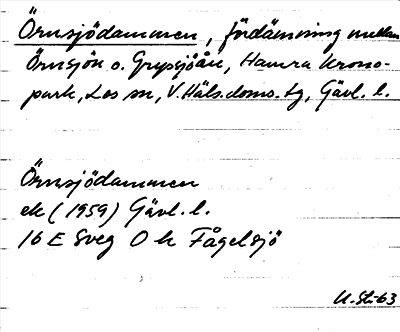 Örnsjödammen, fördämning mellan
Örnsjön o. Grysjöån, Hamra krono-
park, Los sn, V. Häls. doms. tg, Gävl. l.
Örnsjödammen
ek (1959) Gävl. l.
16 E Sveg O h Fågelsjö
U. St-63